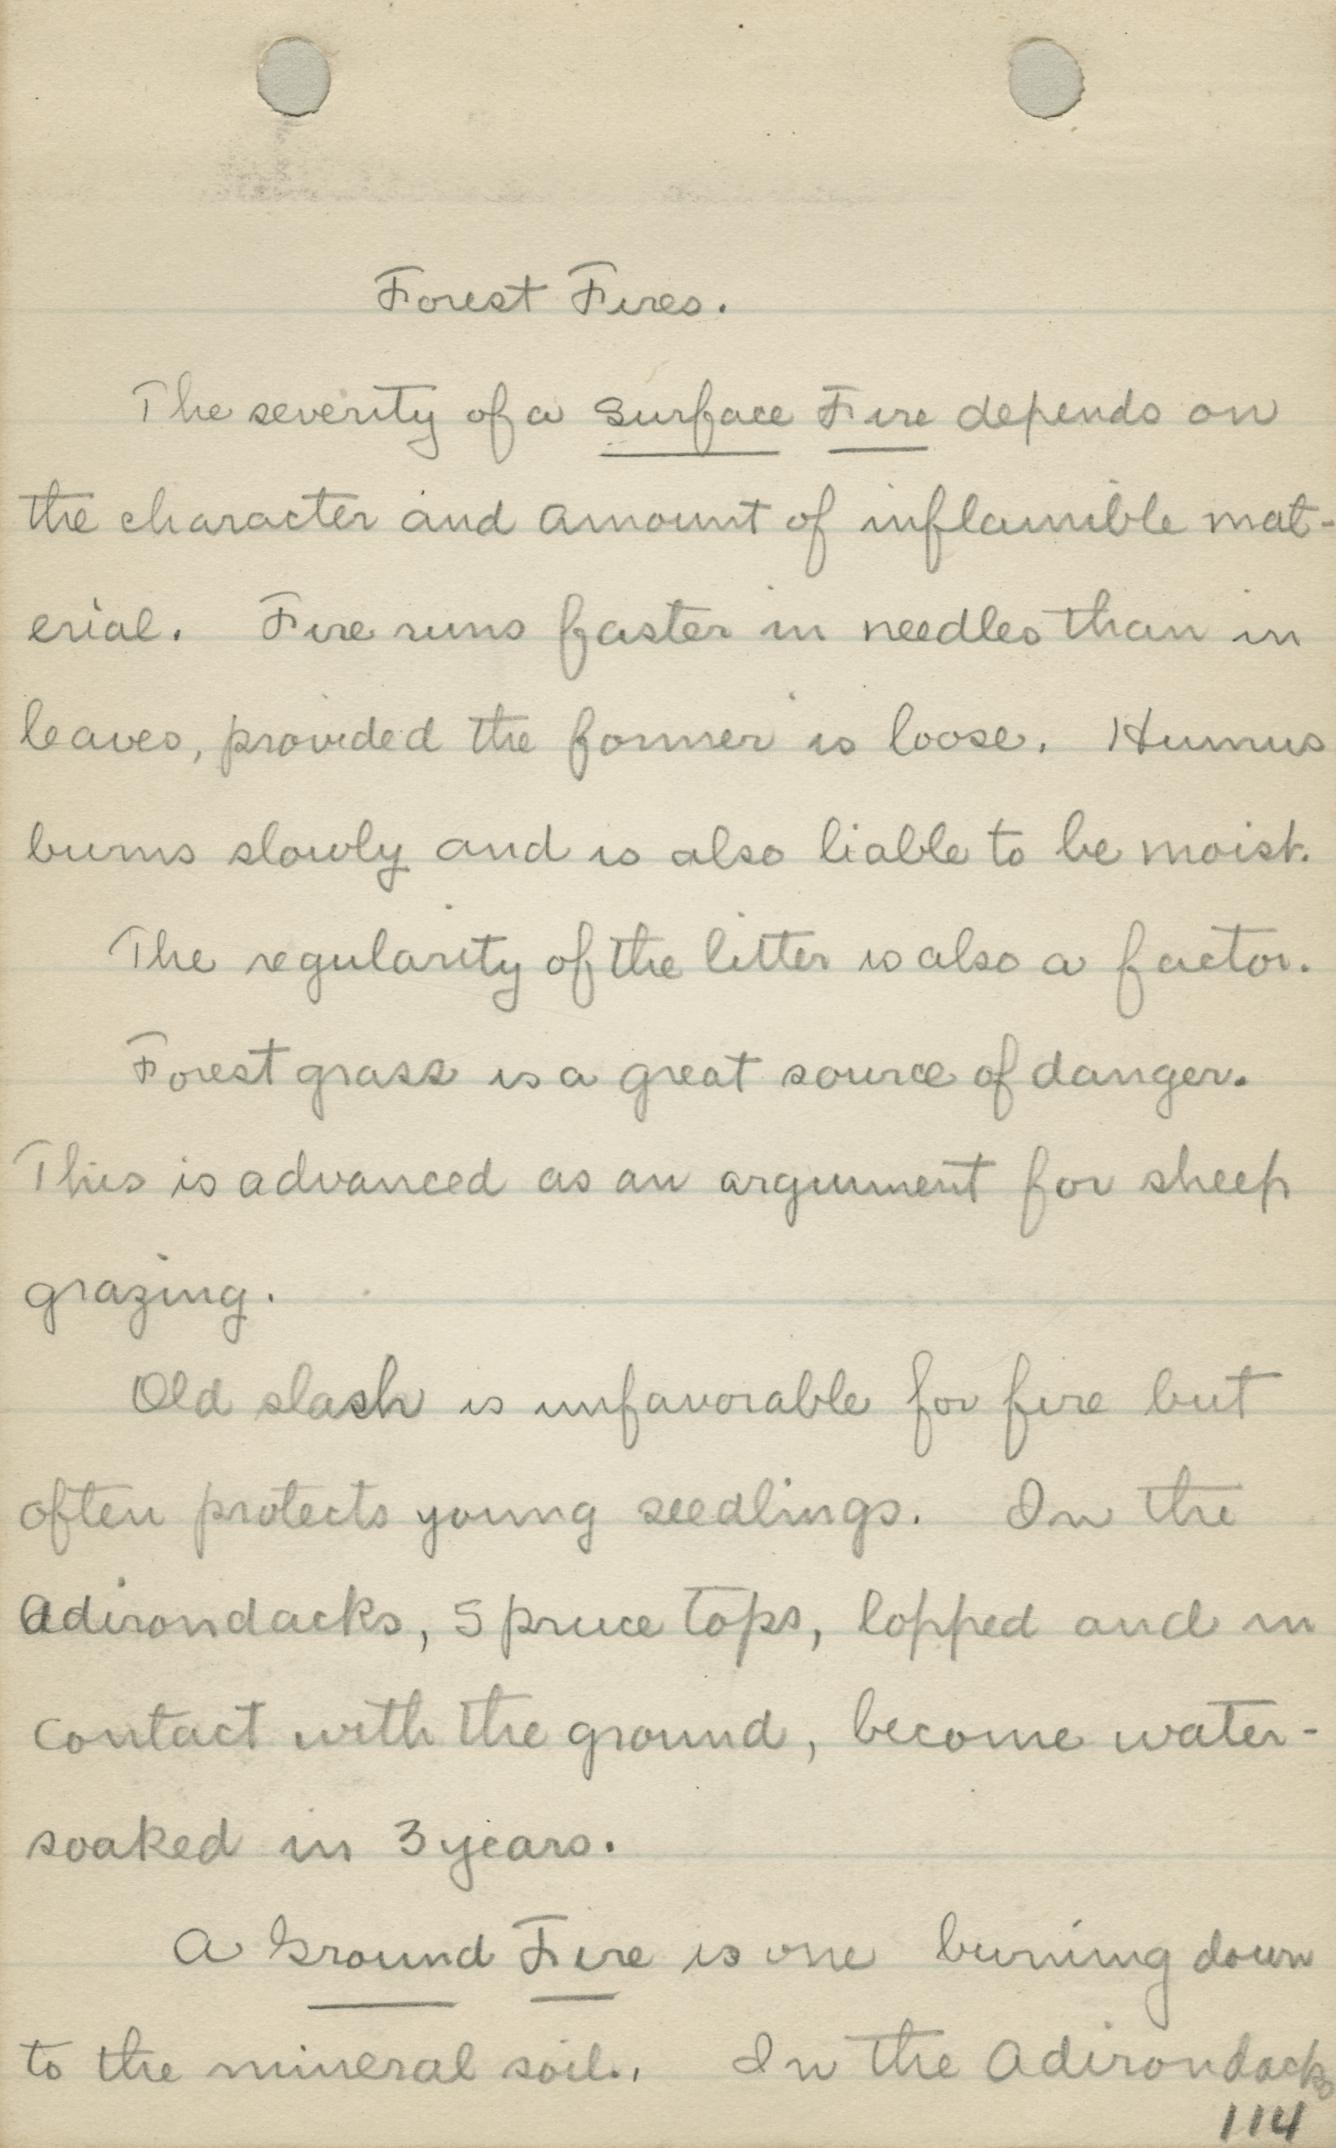 Forest Fires.
The severity of a Surface Fire depends on
the character and amount of inflamible mat-
erial. Fire runs faster in needles than in
leaves, provided the former is loose. Humus
burns slowly and is also liable to be moist.
The regularity of the litter is also a factor.
Forest grass is a great source of danger.
This is advanced as an argument for sheep
grazing.
Old slash is unfavorable for fire but
often protects young seedlings. In the
Adirondacks, Spruce tops, lopped and in
contact with the ground, become water-
soaked in 3 years.
A Ground Fire is one burning down
to the mineral soil. In the Adirondacks
114